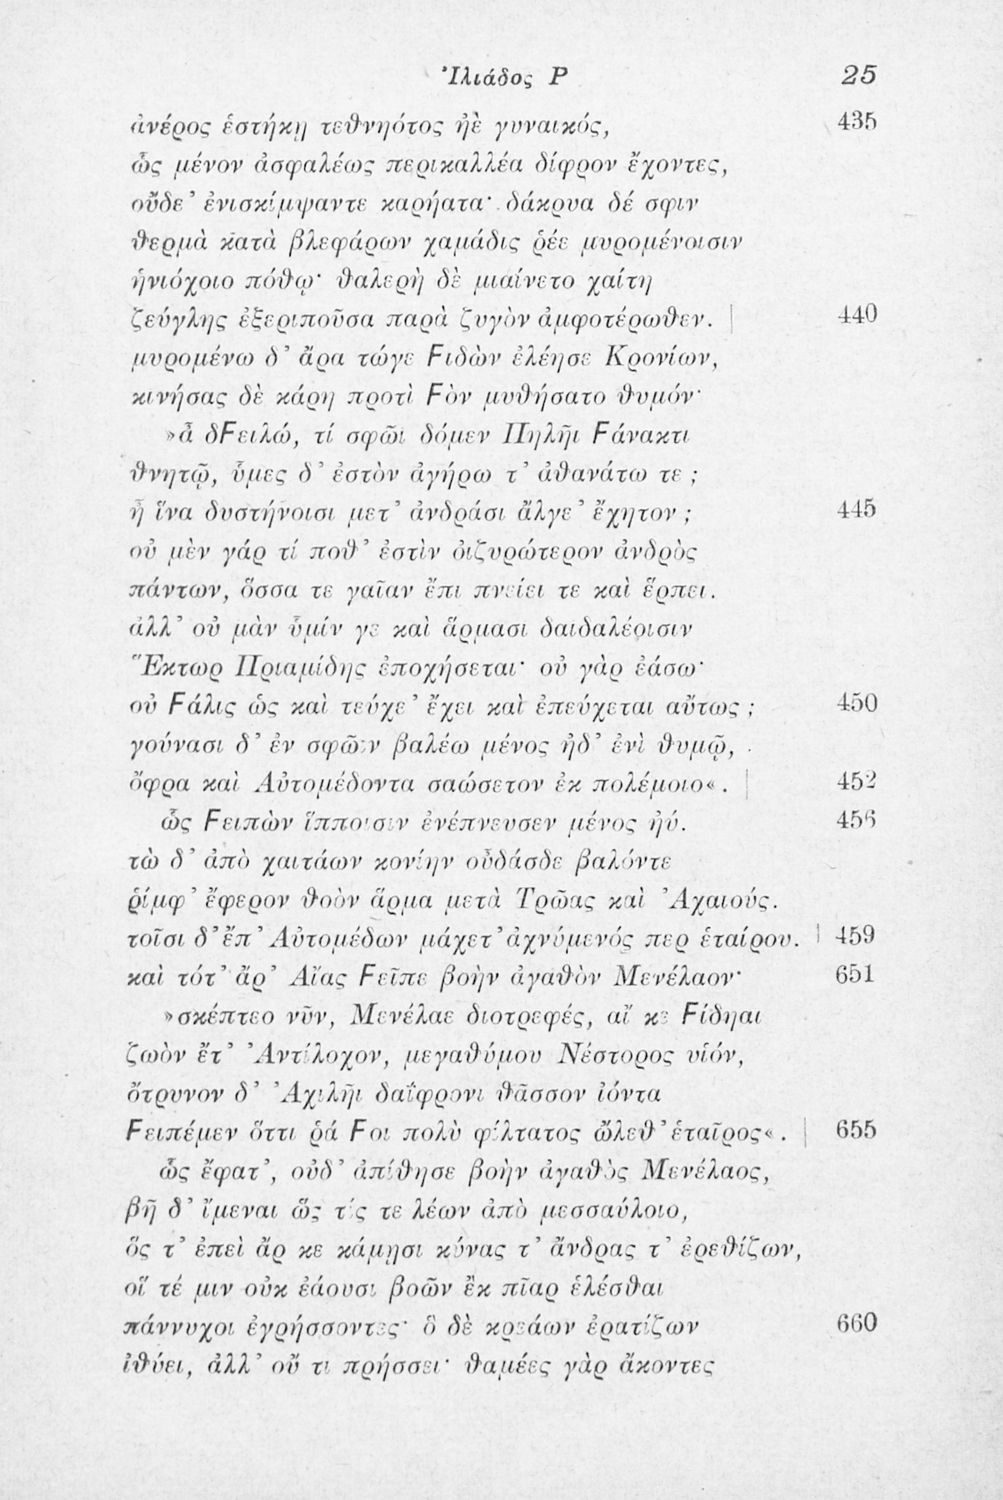 Ἰλιάδος Ρ 25
ἀνέρος ἑστήκῃ τεθνηότος ἠὲ γυναικός, 435
ὣς μένον ἀσφαλέως περικαλλέα δίφρον ἔχοντες,
οὔδε’ ἐνισκίμψαντε καρήατα· δάκρυα δέ σφιν
θερμὰ κατὰ βλεφάρων χαμάδις ῥέε μυρομένοισιν
ἡνιόχοιο πόθῳ· θαλερὴ δὲ μιαίνετο χαίτη
ζεύγλης ἐξεριποῦσα παρὰ ζυγὸν ἀμφοτέρωθεν. | 440
μυρομένω δ’ ἄρα τώγε Ϝιδὼν ἐλέησε Κρονίων,
κινήσας δὲ κάρη προτὶ Ϝὸν μυθήσατο θυμόν·
»ἆ δϜειλώ, τί σφῶϊ δόμεν Πηλῆι Ϝάνακτι
θνητῷ, ὖμες δ’ ἐστὸν ἀγήρω τ’ ἀθανάτω τε ;
ἦ ἵνα δυστήνοισι μετ’ ἀνδράσι ἄλγε’ ἔχητον ; 445
οὐ μὲν γάρ τί ποθ’ ἐστὶν ὀιζυρώτερον ἀνδρὸς
πάντων, ὅσσα τε γαῖαν ἔπι πνείει τε καὶ ἕρπει.
ἀλλ’ οὐ μὰν ὑμίν γε καὶ ἅρμασι δαιδαλέοισιν
Ἕκτωρ Πριαμίδης ἐποχήσεται· οὐ γὰρ ἐάσω·
οὐ Ϝάλις ὡς καὶ τεύχε’ ἔχει καὶ ἐπεύχεται αὔτως ; 450
γούνασι δ’ ἐν σφῶϊν βαλέω μένος ἠδ’ ἐνὶ θυμῷ,
ὄφρα καὶ Αὐτομέδοντα σαώσετον ἐκ πολέμοιο«. | 452
ὣς Ϝειπὼν ἵπποισιν ἐνέπνευσεν μένος ἠύ. 456
τὼ δ’ ἀπὸ χαιτάων κονίην οὖδάσδε βαλόντε
ῥίμφ’ ἔφερον θοὸν ἅρμα μετὰ Τρῶας καὶ Ἀχαιούς.
τοῖσι δ’ ἔπ’ Αὐτομέδων μάχετ’ ἀχνύμενός περ ἑταίρου. | 459
καὶ τότ’ ἄρ’ Αἴας Ϝεῖπε βοὴν ἀγαθὸν Μενέλαον· 651
»σκέπτεο νῦν, Μενέλαε διοτρεφές, αἴ κε Ϝίδηαι
ζωὸν ἔτ’ Ἀντίλοχον, μεγαθύμου Νέστορος υἱόν,
ὄτρυνον δ’ Ἀχιλῆι δαΐφρονι θᾶσσον ἰόντα
Ϝειπέμεν ὅττι ῥά Ϝοι πολὺ φίλτατος ὤλεθ’ ἑταῖρος«. | 655
ὣς ἔφατ’, οὐδ’ ἀπίθησε βοὴν ἀγαθὸς Μενέλαος,
βῆ δ’ ἴμεναι ὥς τίς τε λέων ἀπὸ μεσσαύλοιο,
ὅς τ’ ἐπεὶ ἄρ κε κάμῃσι κύνας τ’ ἄνδρας τ’ ἐρεθίζων,
οἵ τέ μιν οὐκ ἐάουσι βοῶν ἔκ πῖαρ ἑλέσθαι
πάννυχοι ἐγρήσσοντες· ὃ δὲ κρεάων ἐρατίζων 660
ἰθύει, ἀλλ’ οὔ τι πρήσσει· θαμέες γὰρ ἄκοντες